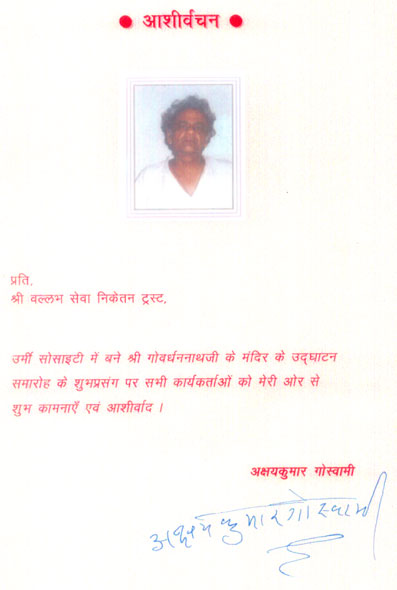 ● आशीर्वचन ●
प्रति,
श्री वल्लभ सेवा निकेतन ट्रस्ट,
उर्मी सोसाइटी में बने श्री गोवर्धननाथजी के मंदिर के उद्‌घाटन
समारोह के शुभप्रसंग पर सभी कार्यकर्ताओं को मेरी ओर से
शुभ कामनाएँ एवं आशीर्वाद ।
अक्षयकुमार गोस्वामी
अक्षयकुमार गोस्वामी